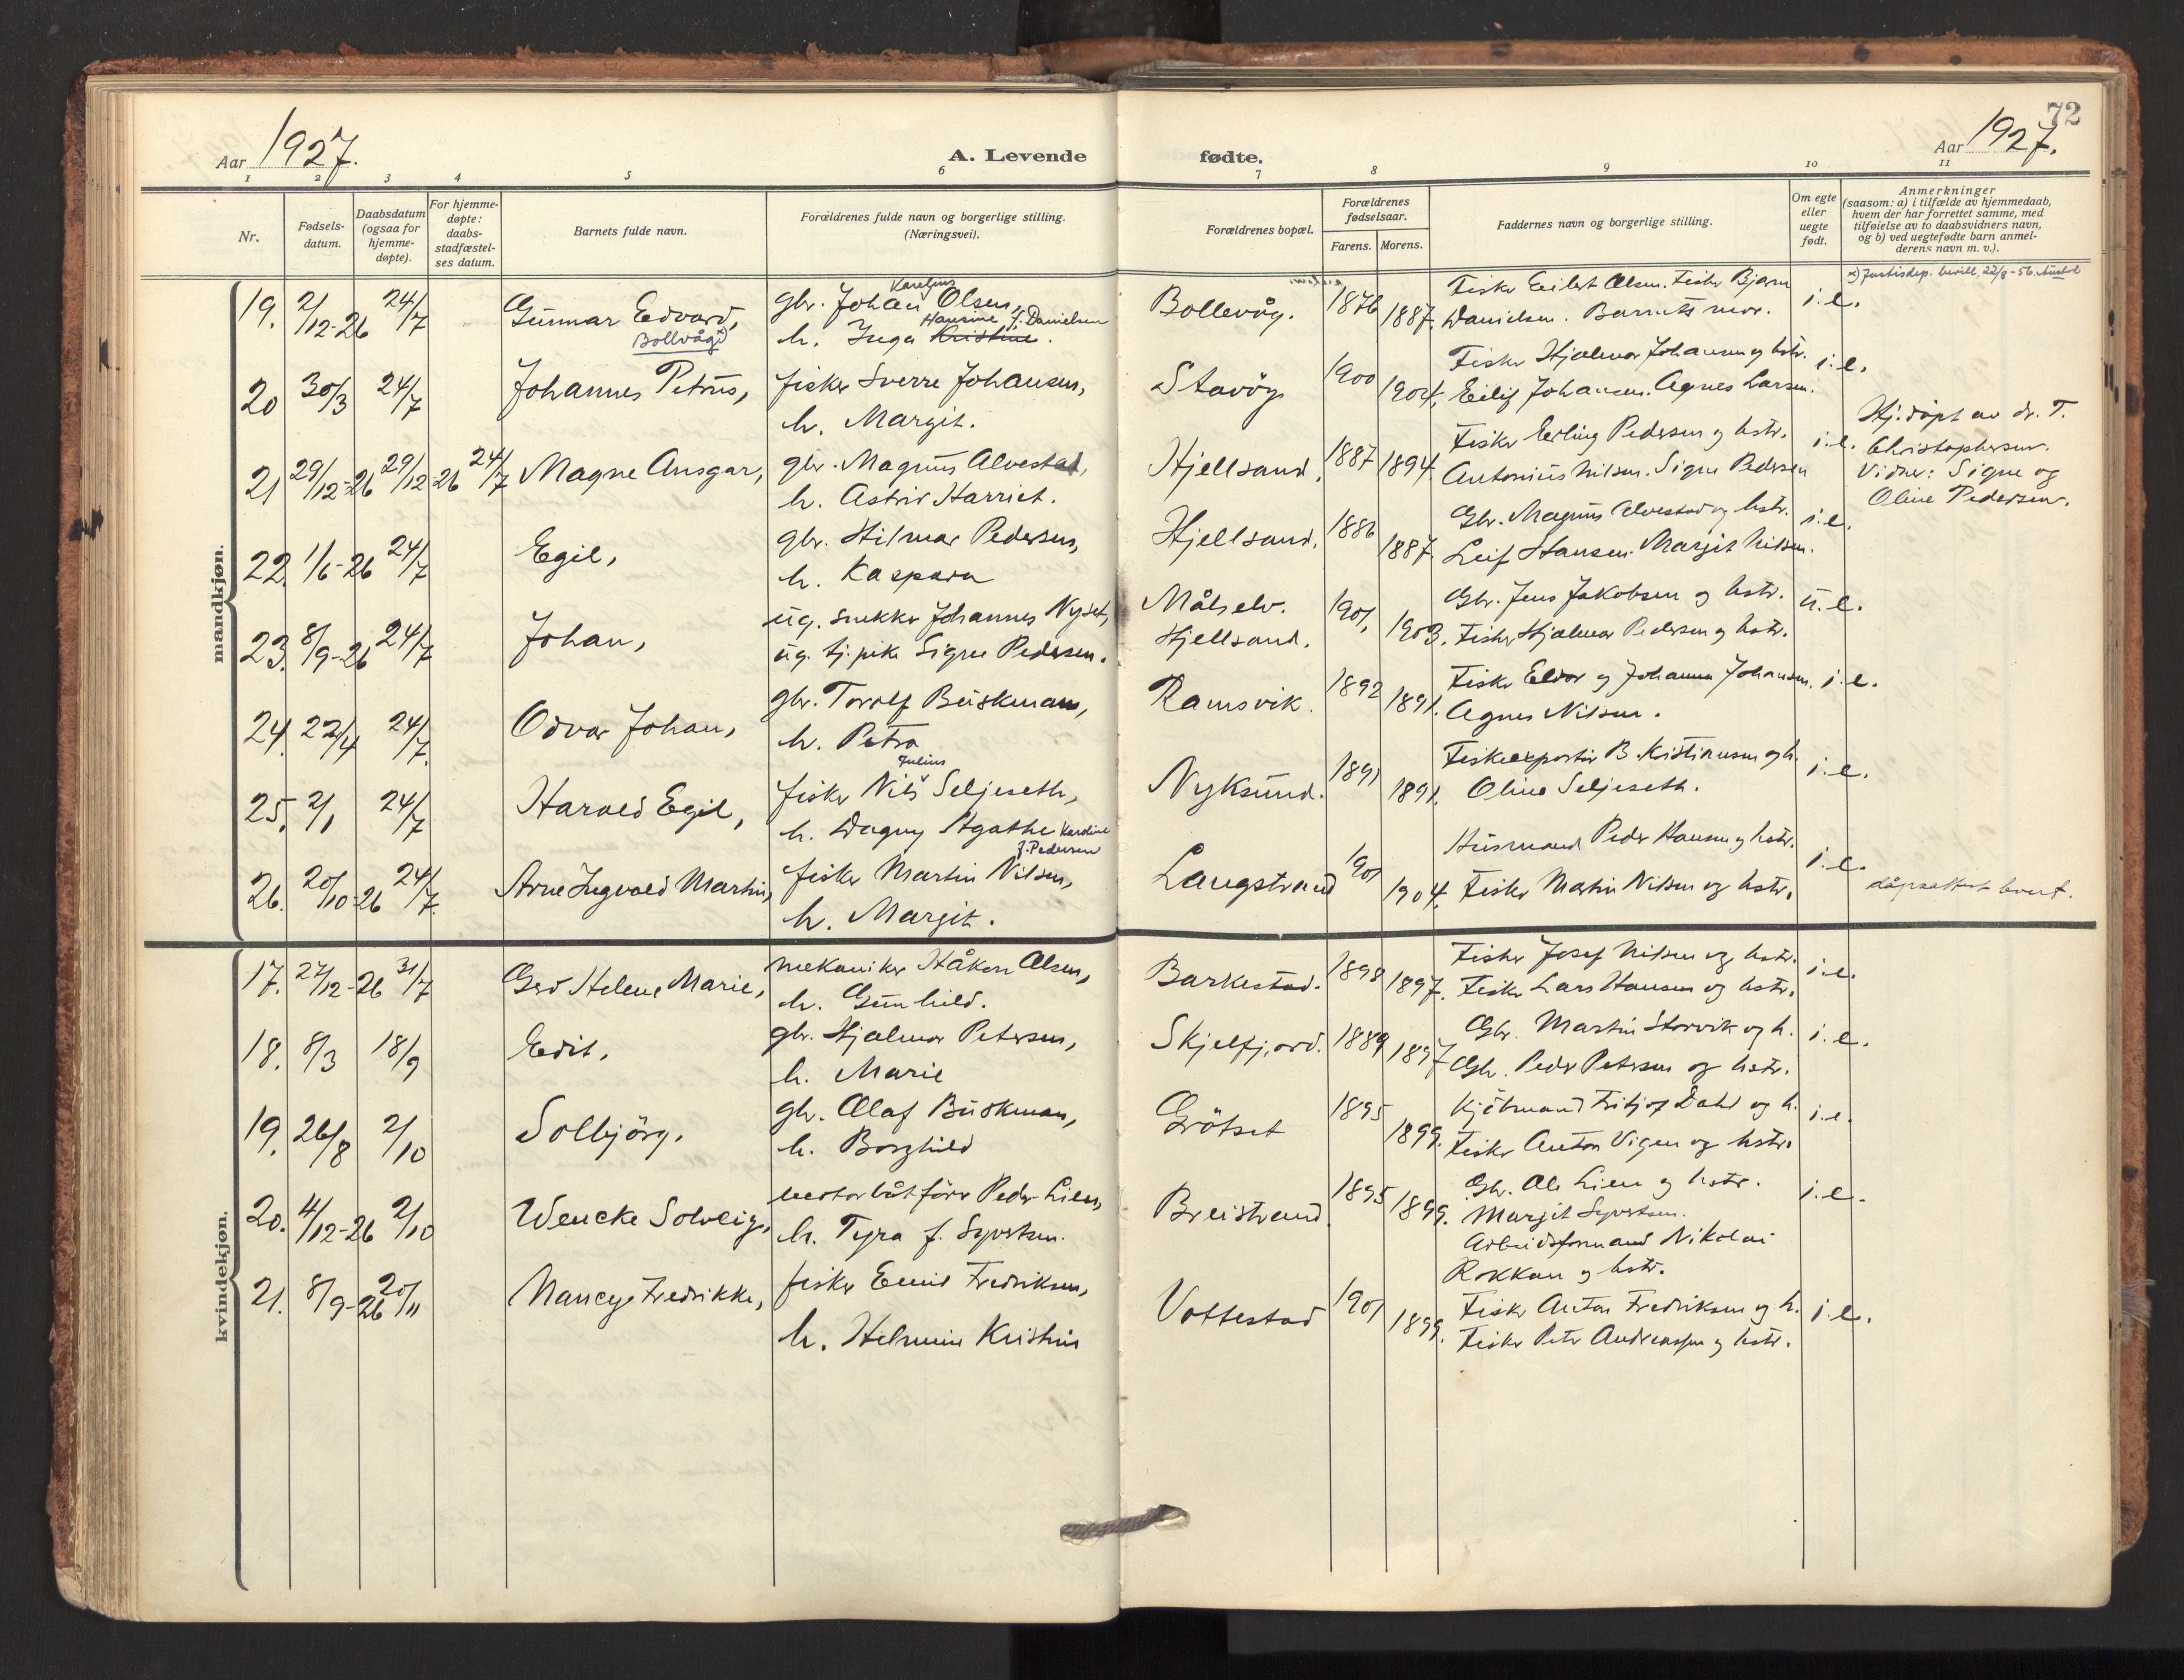 72
Aar 1927. A. Levende fødte. Aar 1927.
1 2 3 4 5 6 7 8 9 10 11
Nr.
Fødsels-
datum.
Daabsdatum
(ogsaa for
hjemme-
døpte).
For hjemme-
døpte:
daabs-
stadfæstel-
ses datum.
Barnets fulde navn.
Forældrenes fulde navn og borgerlige stilling.
(Næringsvei).
Forældrenes bopæl.
Forældrenes
fødselsaar.
Farens. Morens.
Faddernes navn og borgerlige stilling.
Om egte
eller
uegte
født.
Anmerkninger
(saasom: a) i tilfælde av hjemmedaab,
hvem der har forrettet samme, med
tilføielse av to daabsvidners navn,
og b) ved uegtefødte barn anmel-
derens navn m. v.).
mandkjøn.
19. 2/12-26 24/7 Gunnar Edvard, Bollvåg x)
gbr. Johan Karelius Olsen,
h. Inga Kristine Hansine f. Danielsen.
Bollevåg. 1876 1887.
Fisker Eilert Olsen. Fisker Bjarn
Danielsen. Barnets mor.
i.e.
x) Justisdep. bevill. 22/8-56.
20 30/3 24/7 Johannes Petrus,
fisker Sverre Johansen,
h. Margit.
Stavög 1900 1904.
Fisker Hjalmar Johansen og hstr.
Eilif Johansen. Agnes Larsen.
i.e.
21 29/12-26 29/12-26 24/7 Magne Ansgar,
gbr. Magnus Alvestad,
h. Astrid Harriet.
Hjellsand. 1887 1894.
Fisker Erling Pedersen og hstr.
Antonius Nilsen. Signe Pedersen
i.e.
Hj.döpt av dr. T.
Christophersen.
Vidner: Signe og
Oline Pedersen.
22. 1/6-26 24/7 Egil,
gbr. Hilmar Pedersen,
h. Kaspara
Hjellsand. 1886 1887.
Gbr. Magnus Alvestad og hstr.
Leif Hansen. Margit Nilsen.
i.e.
23. 8/9-26 24/7 Johan,
ug. snekker Johannes Nyset,
ug. tj.pike Signe Pedersen.
Målselv.
Hjellsand.
1901, 1903.
Gbr. Jens Jakobsen og hstr.
Fisker Hjalmar Pedersen og hstr.
u.e.
24. 22/4 24/7. Odvar Johan,
gbr. Torolf Buskmann,
h. Petra
Ramsvik. 1892 1891.
Fisker Eldor og Johanna Johansen.
Agnes Nilsen.
i.e.
25. 2/1 24/7 Harald Egil,
fisker Nils Julius Seljeseth,
h. Dagny Agathe Karoline
f. Pedersen
Nyksund. 1891 1891.
Fiskeexportör B. Kristiansen og h.
Oline Seljeseth.
i.e.
26. 20/10-26 24/7. Arne Ingvald Martin,
fisker Martin Nilsen,
h. Margit.
Langstrand 1901 1904.
Husmand Peder Hansen og hstr.
Fisker Martin Nilsen og hstr.
i.e.
dåpsattest
kvindekjøn.
17. 27/12-26 31/7 Gerd Helene Marie,
mekaniker Håkon Olsen,
h. Gunhild.
Barkestad. 1898 1897.
Fisker Josef Nilsen og hstr.
Fisker Lars Hansen og hstr.
i.e.
18. 8/3 18/9 Edit,
gbr. Hjalmar Petersen,
h. Marie
Skjelfjord. 1889 1897
Gbr. Martin Storvik og h.
Gbr. Peder Petersen og hstr.
i.e.
19. 26/8 2/10 Solbjörg.
gbr. Olaf Buskman,
h. Borghild
Grötset 1895 1899.
Kjöbmand Fritjof Dahl og h.
Fisker Anton Vigen og hstr.
i.e.
20. 4/12-26 2/10 Wencke Solveig,
motorbåtförer Peder Lien,
h. Tyra f. Syvertsen.
Breistrand. 1895 1899.
Gbr. Ole Lien og hstr.
Margit Syvertsen.
Arbeidsformand Nikolai
Rokkan og hstr.
i.e.
21. 8/9-26 20/11 Nancy Fredrikke,
fisker Emil Fredriksen,
h. Helmine Kristine
Vottestad 1901 1899.
Fisker Anton Fredriksen og h.
Fisker Peter Andreassen og hstr.
i.e.